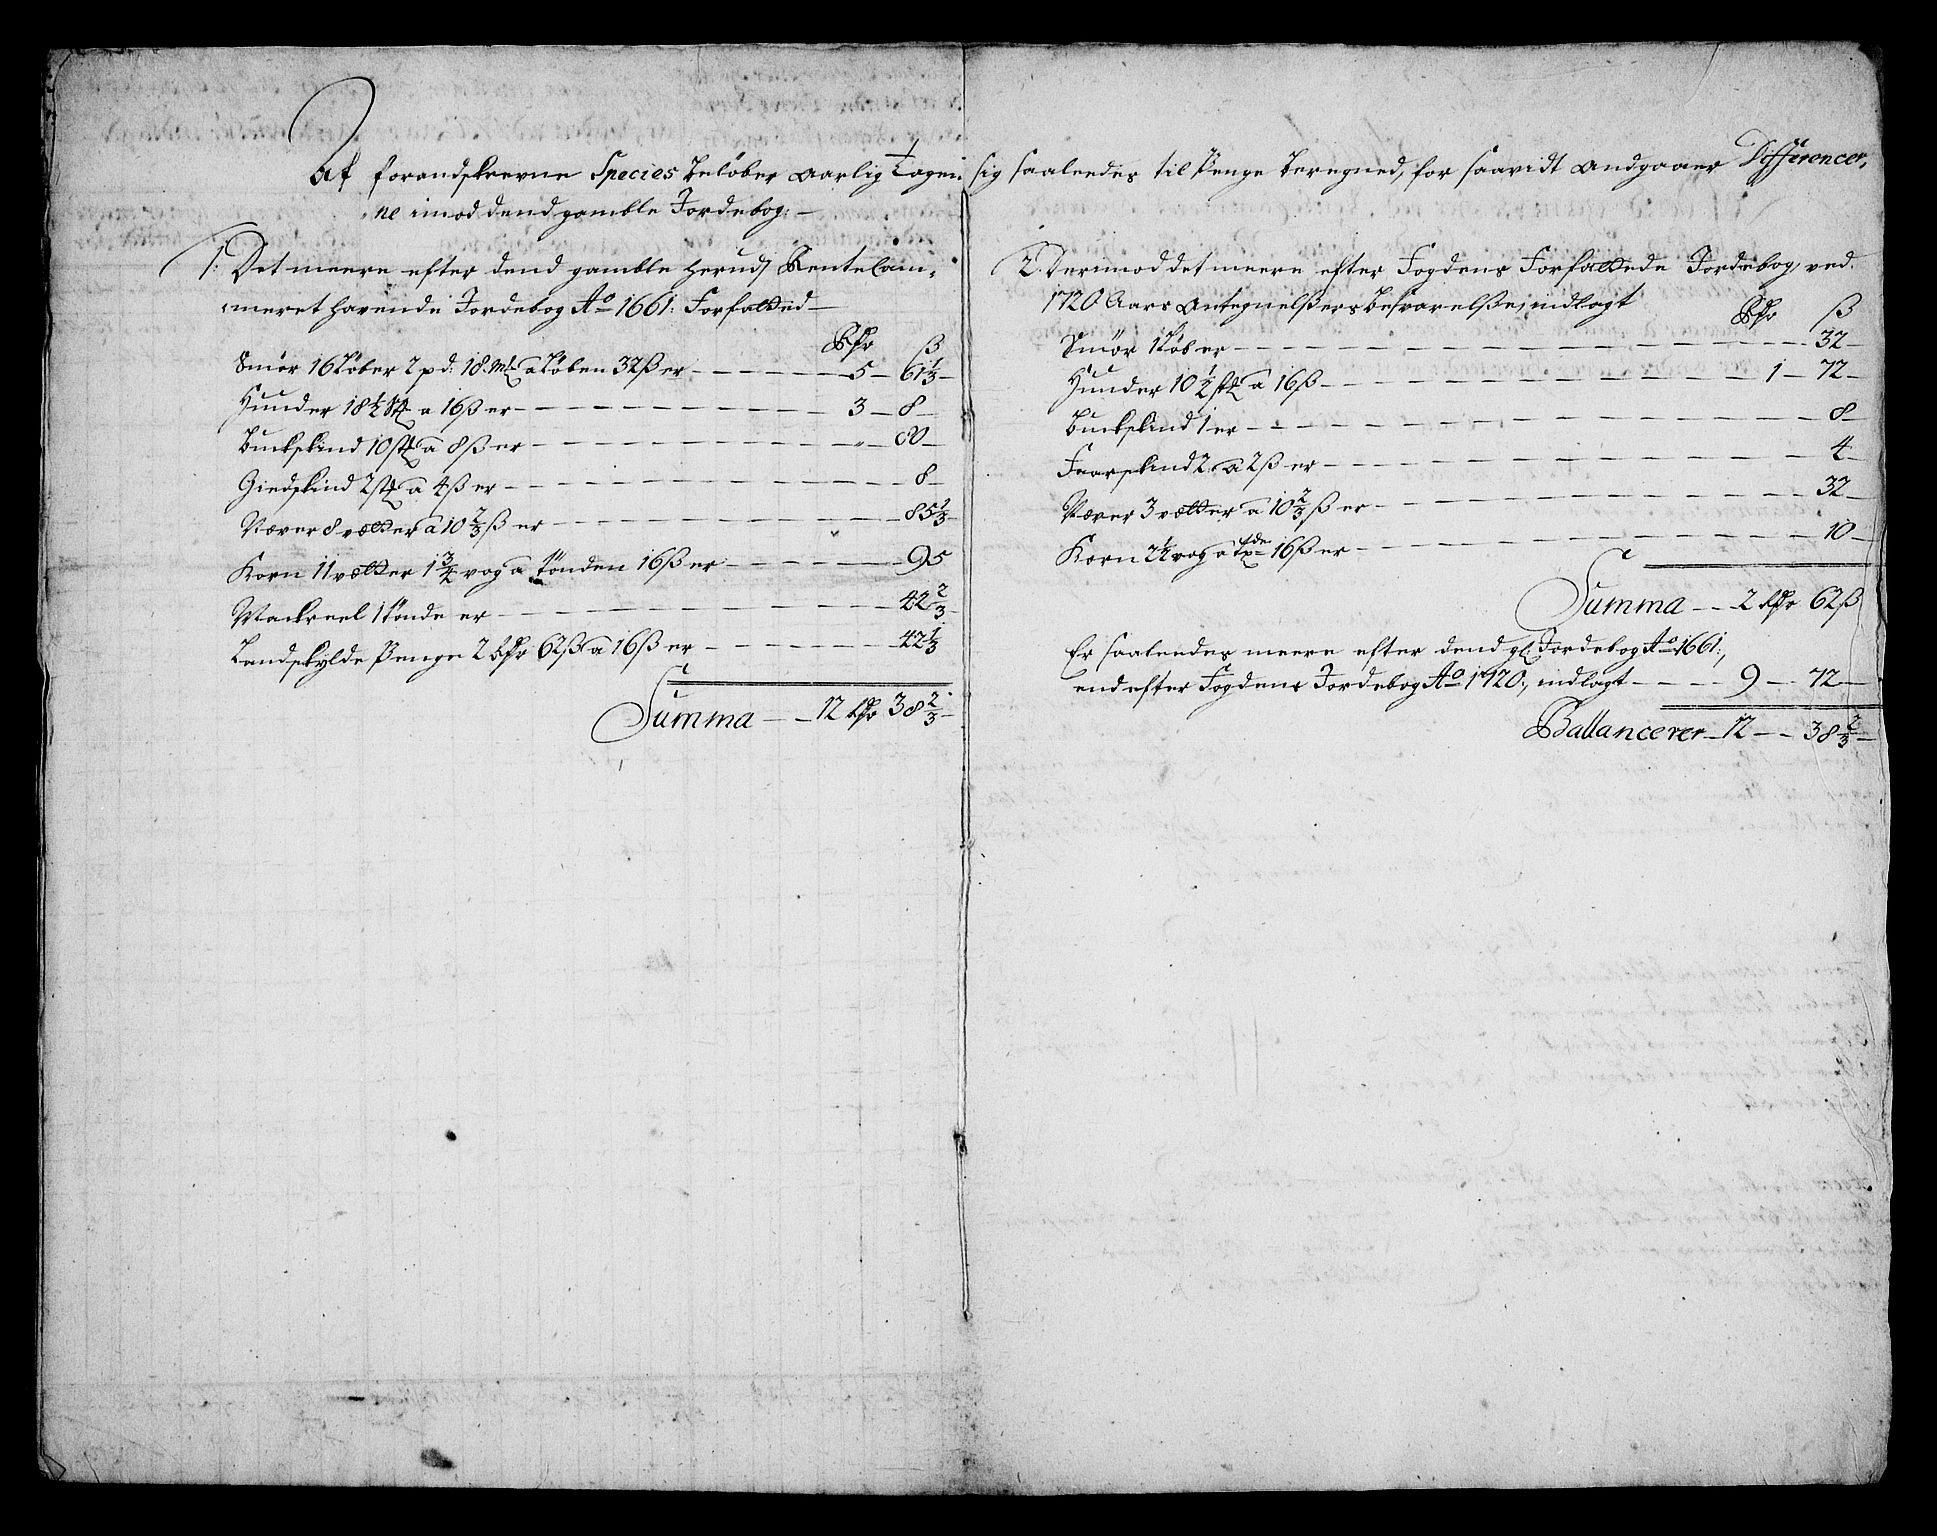 Af forandskrevne Species beløber Aarlig Lagen sig saaleedes til Penge beregned, for saavidt Andgaaer Differencer,
ne imod dend gamble Jordebog: —
1: Det meere efter dend gamble herud j RenteCam,
meret havende Jordebog Ao 1661: Forfatted —
Rdr ß
Smör 16 Løber 2 pd: 18 Mk a Løben 32 ß er — 5 — 61 1/3 —
Huuder 18 1/2 Stk a 16 ß er — 3 — 8 —
Buckskind 10 stk a 8 ß er — „ — 80 —
Giedskind 2 stk a 4 ß er — 8 —
Næver 8 vætter a 10 2/3 ß er — 85 1/3 —
Korn 11 vætter 1 3/4 vog a tönden 16 ß er — 95
Mackreel 1 tönde er — 42 2/3 —
Landskylds Penge 2 Rdr 62 ß a 16 ß er — 42 1/3
Summa — 12 Rdr 38 2/3 —
2. Derimod det meere efter Fogdens Forfattede Jordebog, ved
1720 Aars Antegnelßers Besvarelße, indlagt
Rdr ß
Smör 1 Løb er — 32 —
Huuder 10 1/2 stk a 16 ß — 1 — 72 —
Buckskind 1 er — 8 —
Faarskind 2 a 2 ß er — 4 —
Næver 3 vætter a 10 2/3 ß er — 32 —
Korn 2 1/2 vog a Tde 16 ß er — 10 —
Summa — 2 Rdr 62 ß
Er saaleedes meere efter dend gl. Jordebog Ao 1661:,
end efter Fogdens Jordebog Ao 1720:, indlagt — 9 — 72 —
Ballancerer — 12 — 38 2/3 —